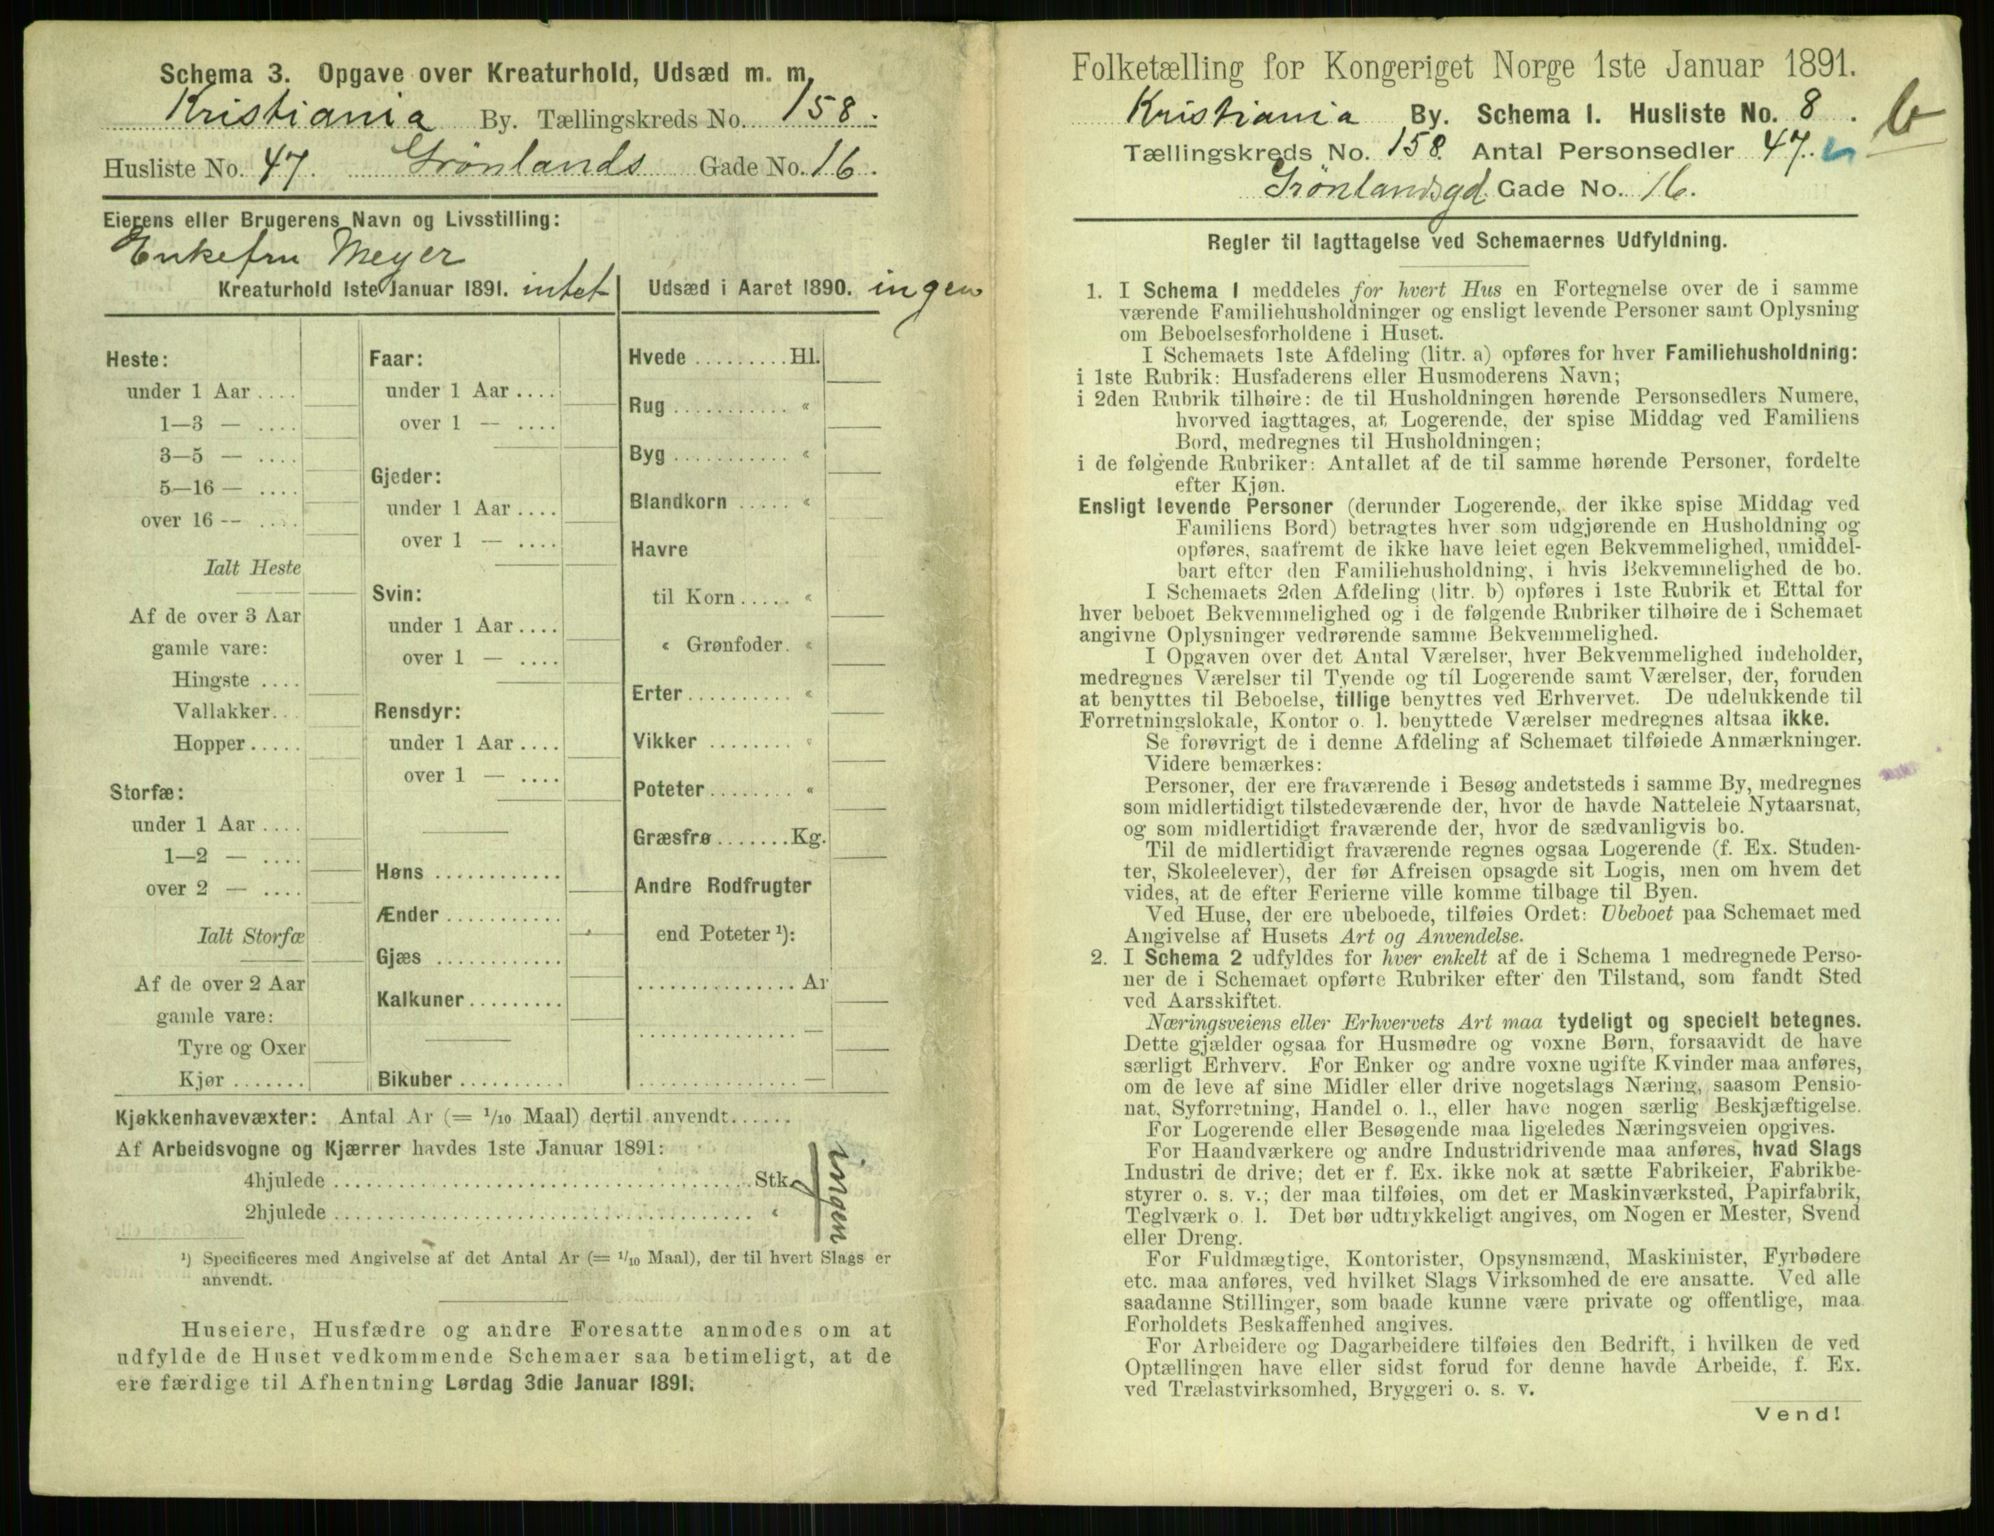 Schema 3. Opgave over Kreaturhold, Udsæd m. m.
Kristiania By. Tællingskreds No. 158.
Husliste No. 47. Grönlands Gade No. 16.
Eierens eller Brugerens Navn og Livsstilling:
Enkefru Meyer
Kreaturhold 1ste Januar 1891. intet
Heste:
under 1 Aar ....
1—3 — ....
3—5 — ....
5—16 — ....
over 16 -- ....
Ialt Heste
Af de over 3 Aar
gamle vare:
Hingste ....
Vallakker...
Hopper.....
Storfæ:
under 1 Aar ....
1—2 — ....
over 2 — ....
Ialt Storfæ
Af de over 2 Aar
gamle vare:
Tyre og Oxer
Kjør .......
Faar:
under 1 Aar ....
over 1 — ....
Gjeder:
under 1 Aar ....
over 1 — ....
Svin:
under 1 Aar ....
over 1 — ....
Rensdyr:
under 1 Aar ....
over 1 — ....
Høns ............
Ænder ...........
Gjæs ............
Kalkuner.........
Bikuber ..........
Udsæd i Aaret 1890. ingen
Hvede .........Hl.
Rug ........... «
Byg ........... «
Blandkorn ..... «
Havre
til Korn..... «
« Grønfoder. «
Erter.......... «
Vikker ........ «
Poteter........ «
Græsfrø.......Kg.
Andre Rodfrugter
end Poteter ¹):
...............Ar
............... —
............... —
Kjøkkenhavevæxter: Antal Ar (= ¹/₁₀ Maal) dertil anvendt......
Af Arbeidsvogne og Kjærrer havdes 1ste Januar 1891:
4hjulede ........................................Stk.
2hjulede ........................................ «
ingen
¹) Specificeres med Angivelse af det Antal Ar (= ¹/₁₀ Maal), der til hvert Slags er
anvendt.
Huseiere, Husfædre og andre Foresatte anmodes om at
udfylde de Huset vedkommende Schemaer saa betimeligt, at de
ere færdige til Afhentning Lørdag 3die Januar 1891.
Folketælling for Kongeriget Norge 1ste Januar 1891.
Kristiania By. Schema I. Husliste No. 8.
Tællingskreds No. 158. Antal Personsedler 47.
Grönlandsgd Gade No. 16.
Regler til Iagttagelse ved Schemaernes Udfyldning.
1. I Schema I meddeles for hvert Hus en Fortegnelse over de i samme
værende Familiehusholdninger og ensligt levende Personer samt Oplysning
om Beboelsesforholdene i Huset.
I Schemaets 1ste Afdeling (litr. a) opføres for hver Familiehusholdning:
i 1ste Rubrik: Husfaderens eller Husmoderens Navn;
i 2den Rubrik tilhøire: de til Husholdningen hørende Personsedlers Numere,
hvorved iagttages, at Logerende, der spise Middag ved Familiens
Bord, medregnes til Husholdningen;
i de følgende Rubriker: Antallet af de til samme hørende Personer, fordelte
efter Kjøn.
Ensligt levende Personer (derunder Logerende, der ikke spise Middag ved
Familiens Bord) betragtes hver som udgjørende en Husholdning og
opføres, saafremt de ikke have leiet egen Bekvemmelighed, umiddel-
bart efter den Familiehusholdning, i hvis Bekvemmelighed de bo.
I Schemaets 2den Afdeling (litr. b) opføres i 1ste Rubrik et Ettal for
hver beboet Bekvemmelighed og i de følgende Rubriker tilhøire de i Schemaet
angivne Oplysninger vedrørende samme Bekvemmelighed.
I Opgaven over det Antal Værelser, hver Bekvemmelighed indeholder,
medregnes Værelser til Tyende og til Logerende samt Værelser, der, foruden
at benyttes til Beboelse, tillige benyttes ved Erhvervet. De udelukkende til
Forretningslokale, Kontor o. l. benyttede Værelser medregnes altsaa ikke.
Se forøvrigt de i denne Afdeling af Schemaet tilføiede Anmærkninger.
Videre bemærkes:
Personer, der ere fraværende i Besøg andetsteds i samme By, medregnes
som midlertidigt tilstedeværende der, hvor de havde Natteleie Nytaarsnat,
og som midlertidigt fraværende der, hvor de sædvanligvis bo.
Til de midlertidigt fraværende regnes ogsaa Logerende (f. Ex. Studen-
ter, Skoleelever), der før Afreisen opsagde sit Logis, men om hvem det
vides, at de efter Ferierne ville komme tilbage til Byen.
Ved Huse, der ere ubeboede, tilføies Ordet: Ubeboet paa Schemaet med
Angivelse af Husets Art og Anvendelse.
2. I Schema 2 udfyldes for hver enkelt af de i Schema 1 medregnede Perso-
ner de i Schemaet opførte Rubriker efter den Tilstand, som fandt Sted
ved Aarsskiftet.
Næringsveiens eller Erhvervets Art maa tydeligt og specielt betegnes.
Dette gjælder ogsaa for Husmødre og voxne Børn, forsaavidt de have
særligt Erhverv. For Enker og andre voxne ugifte Kvinder maa anføres,
om de leve af sine Midler eller drive nogetslags Næring, saasom Pensio-
nat, Syforretning, Handel o. l., eller have nogen særlig Beskjæftigelse.
For Logerende eller Besøgende maa ligeledes Næringsveien opgives.
For Haandværkere og andre Industridrivende maa anføres, hvad Slags
Industri de drive; det er f. Ex. ikke nok at sætte Fabrikeier, Fabrikbe-
styrer o. s. v.; der maa tilføies, om det er Maskinværksted, Papirfabrik,
Teglværk o. l. Det bør udtrykkeligt angives, om Nogen er Mester, Svend
eller Dreng.
For Fuldmægtige, Kontorister, Opsynsmænd, Maskinister, Fyrbødere
etc. maa anføres, ved hvilket Slags Virksomhed de ere ansatte. Ved alle
saadanne Stillinger, som baade kunne være private og offentlige, maa
Forholdets Beskaffenhed angives.
For Arbeidere og Dagarbeidere tilføies den Bedrift, i hvilken de ved
Optællingen have eller sidst forud for denne havde Arbeide, f. Ex.
ved Trælastvirksomhed, Bryggeri o. s. v.
Vend!